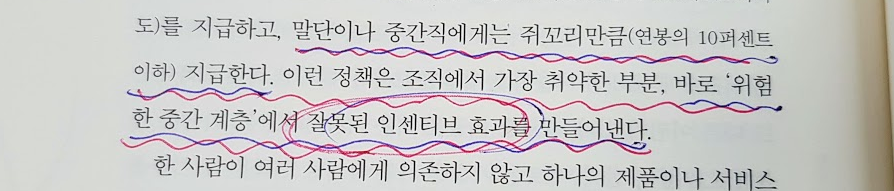 도)를 지급하고, 말단이나 중간직에게는 쥐꼬리만큼(연봉의 10퍼센트
이하) 지급한다. 이런 정책은 조직에서 가장 취약한 부분, 바로 ‘위험
한 중간 계층’에서 잘못된 인센티브 효과를 만들어낸다.
한 사람이 여러 사람에게 의존하지 않고 하나의 제품이나 서비스